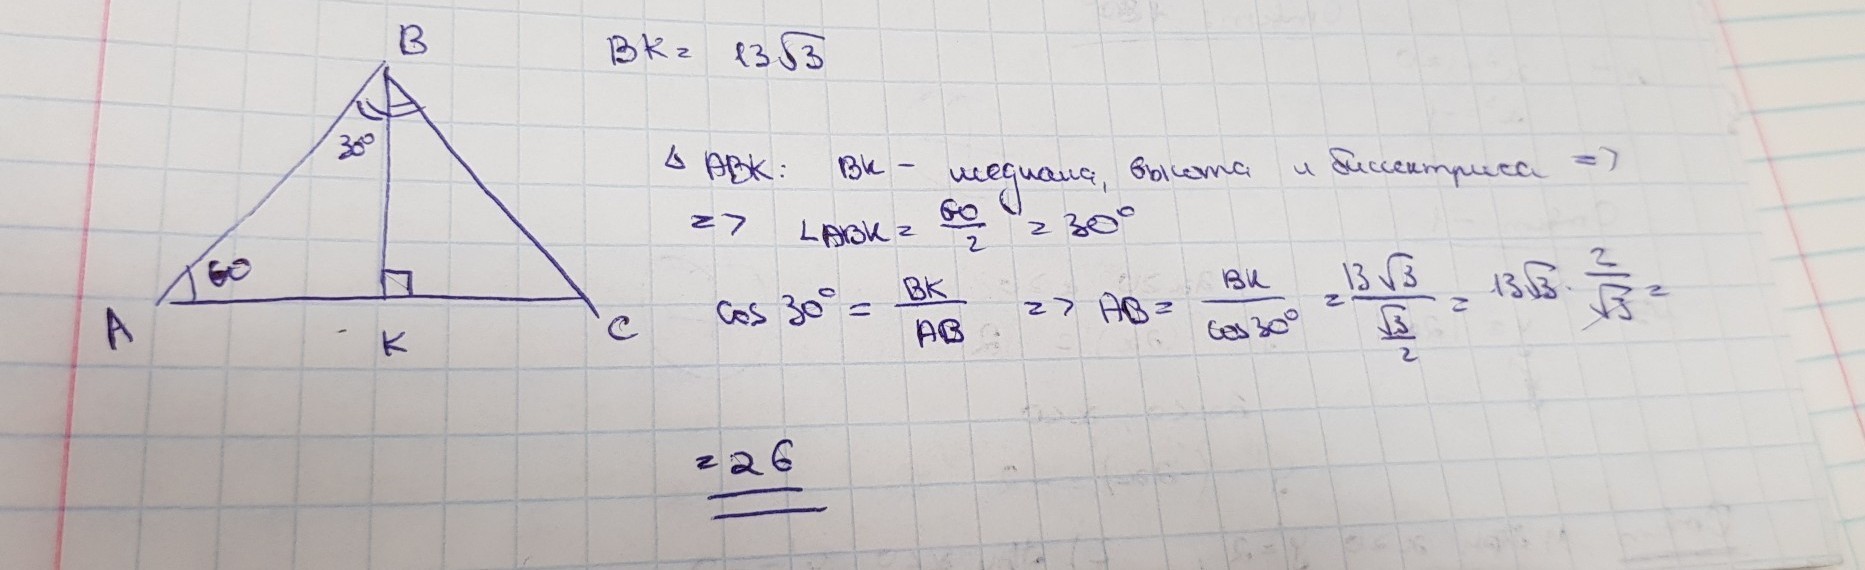 B
BK = 13√3
30°
Δ ABK: BK - медиана, высота и биссектриса =>
=> ∠ABK = 60/2 = 30°
60
cos 30° = BK/AB => AB = BK/cos30° = 13√3/(√3/2) = 13√3 · 2/√3 =
A K C
= 26